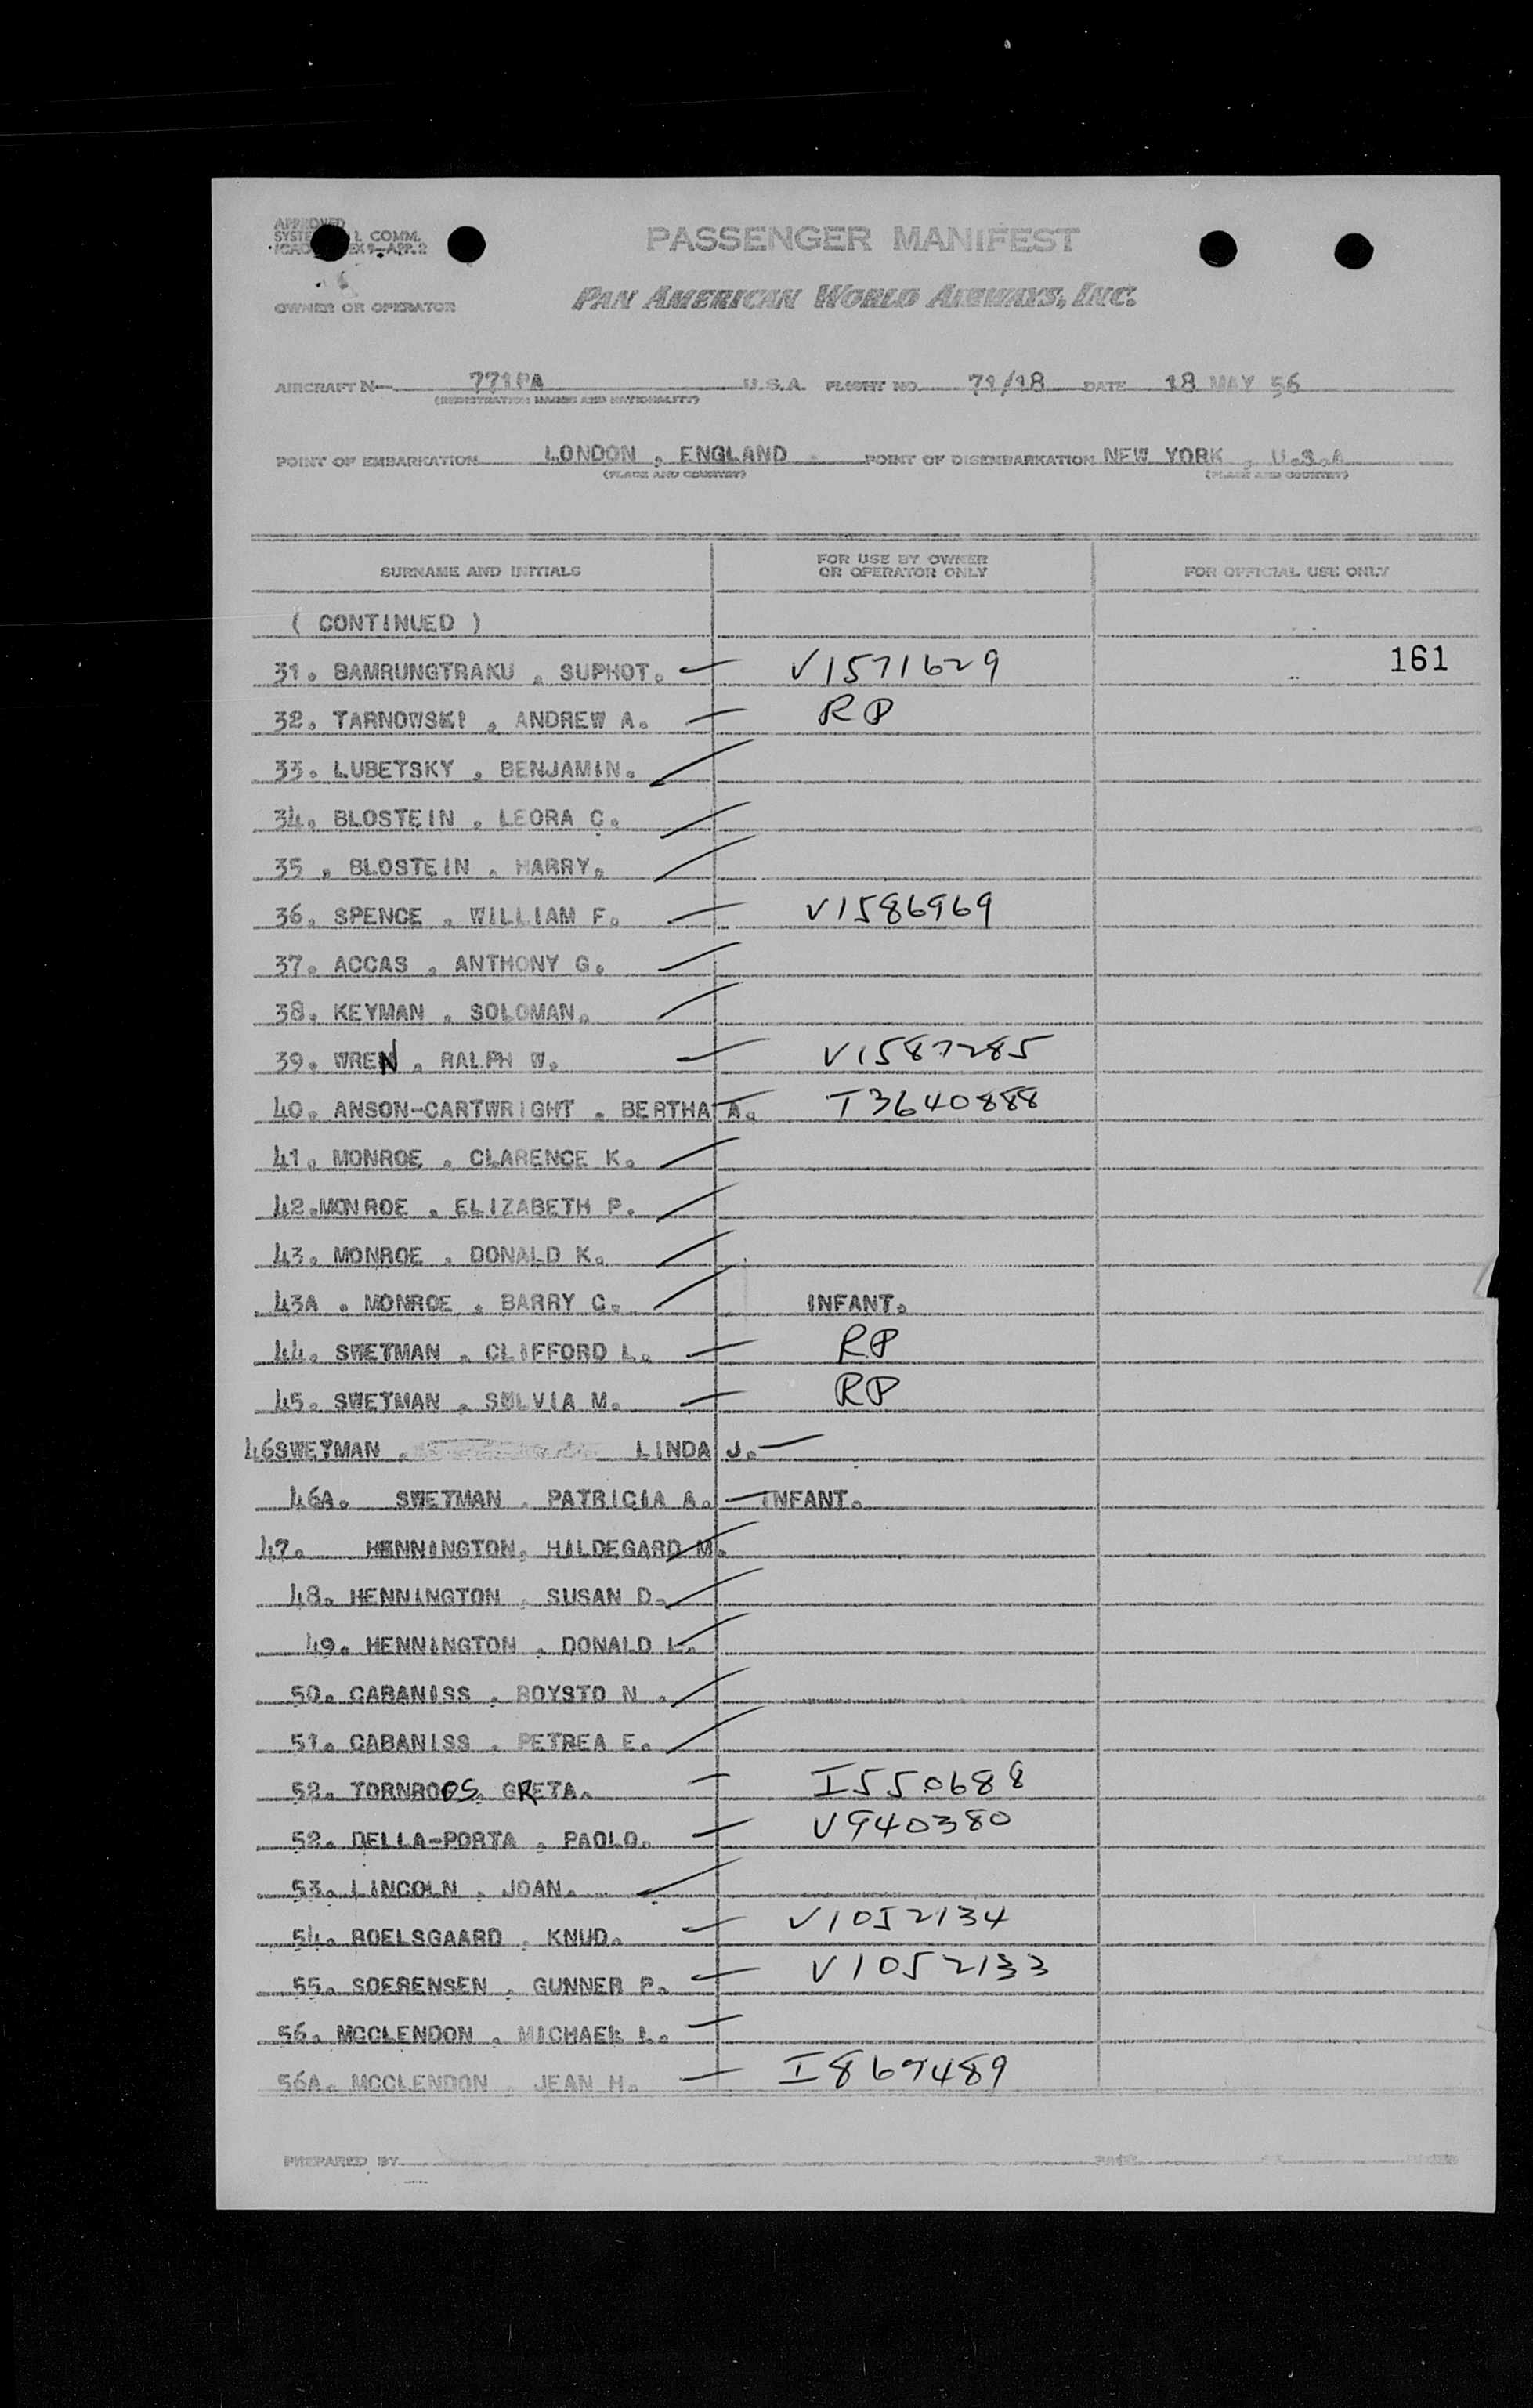 APPROVED
SYSTE L COMM.
ICAO EX 9-APP. 2
PASSENGER MANIFEST
OWNER OR OPERATOR
PAN AMERICAN WORLD AIRWAYS, INC.
AIRCRAFT N- 771PA U.S.A. FLIGHT NO. 71/18 DATE 18 MAY 56
(REGISTRATION MARKS AND NATIONALITY)
POINT OF EMBARKATION LONDON , ENGLAND . POINT OF DISEMBARKATION NEW YORK , U.S.A
(PLACE AND COUNTRY) (PLACE AND COUNTRY)
SURNAME AND INITIALS FOR USE BY OWNER OR OPERATOR ONLY FOR OFFICIAL USE ONLY
( CONTINUED )
31. BAMRUNGTRAKU , SUPHOT. V1571629 161
32. TARNOWSKI , ANDREW A. RP
33. LUBETSKY , BENJAMIN.
34. BLOSTEIN , LEORA C.
35 , BLOSTEIN , HARRY.
36. SPENCE , WILLIAM F. V1586969
37. ACCAS , ANTHONY G.
38. KEYMAN , SOLOMAN.
39. WREN , RALPH W. V1587285
40. ANSON-CARTWRIGHT , BERTHA A. I3640888
41. MONROE , CLARENCE K.
42.MONROE , ELIZABETH P.
43. MONROE , DONALD K.
43A . MONROE , BARRY C. INFANT.
44. SWETMAN , CLIFFORD L. RP
45. SWETMAN , SWLVIA M. RP
46SWETMAN , LINDA J.
46A. SWETMAN , PATRICIA A. INFANT.
47. HENNINGTON, HILDEGARD M.
48. HENNINGTON , SUSAN D.
49. HENNINGTON , DONALD L.
50. CABANISS , ROYSTO N .
51. CABANISS , PETREA E.
52. TORNROOS, GRETA. I550688
52. DELLA-PORTA , PAOLO. V940380
53. LINCOLN , JOAN.
54. ROELSGAARD , KNUD. V1052134
55. SOERENSEN , GUNNER P. V1052133
56. MCCLENDON , MICHAEL L.
56A. MCCLENDON , JEAN H. I867489
PREPARED BY PAGE